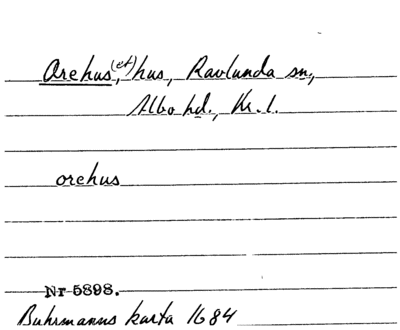 Orehus,(et) hus, Ravlunda sn,
Albo hd., Kr. l.
orehus
Nr 5898.
Buhrmanns karta 1684